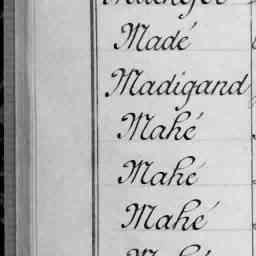 Madé
Madigand
Mahé
Mahé
Mahé